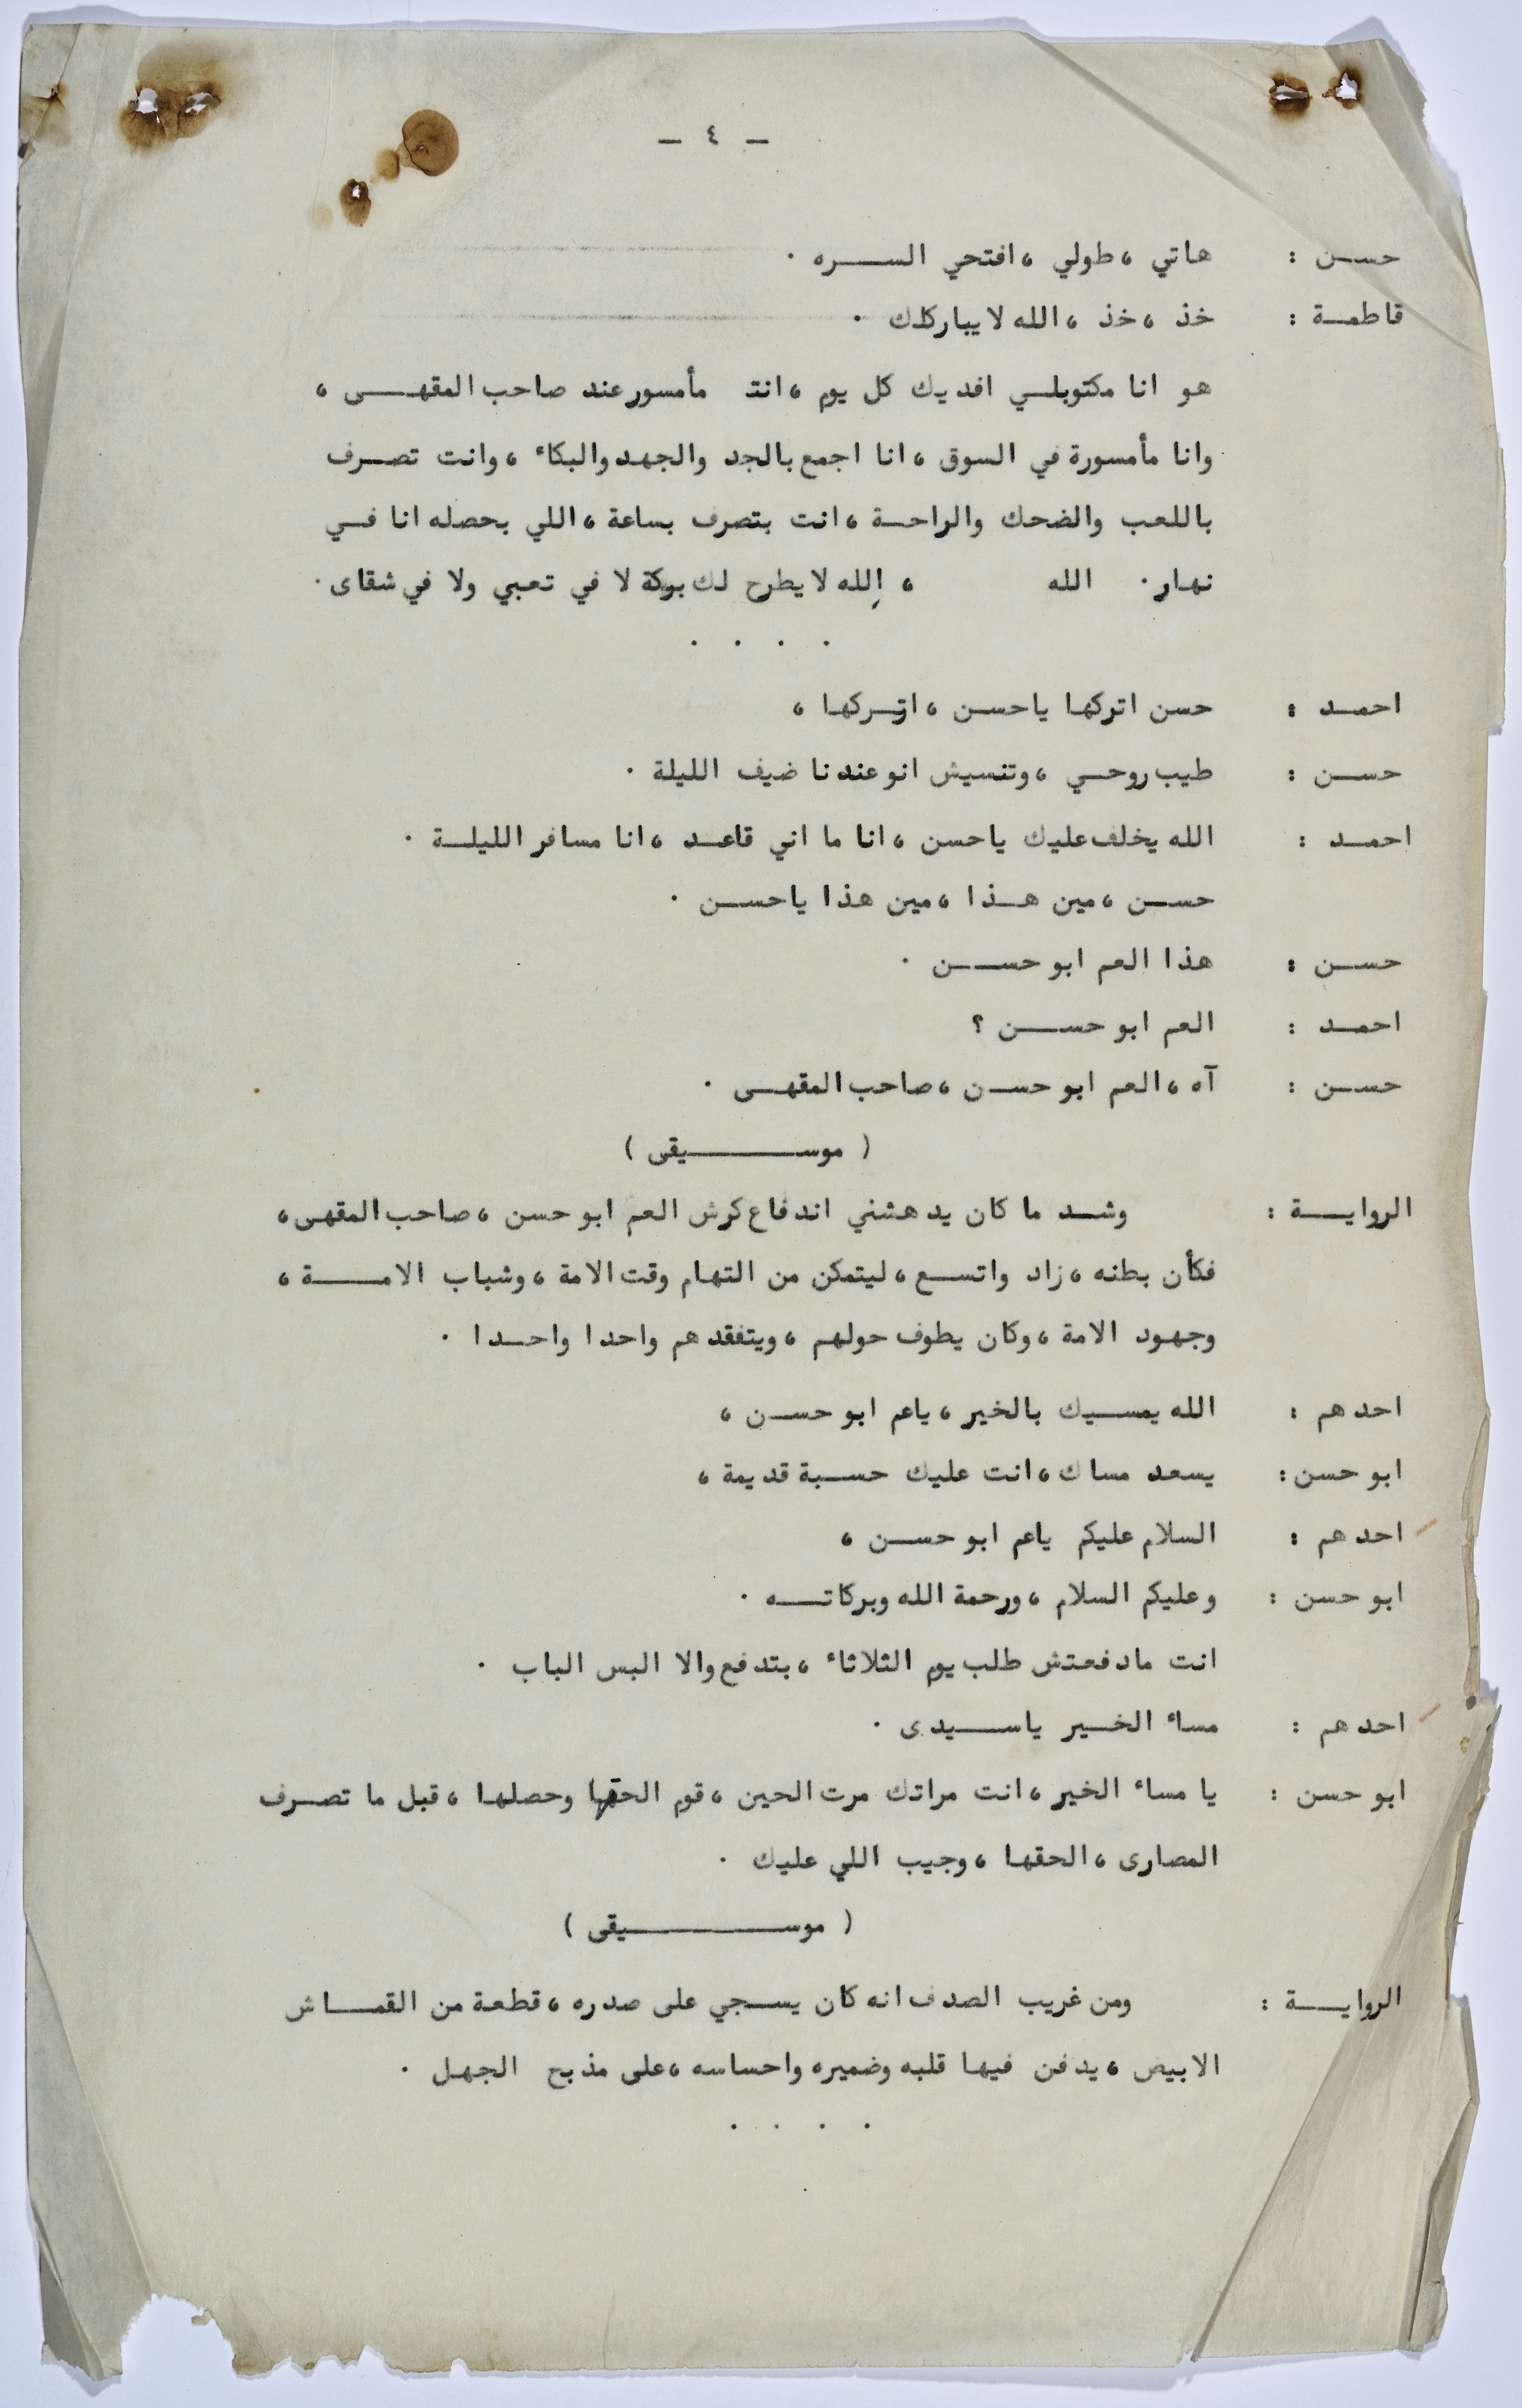 - ٤ -
حسن : هاتي ، طولي ، افتحي السره .
قاطمة : خذ ، خذ ، الله لا يباركلك .
هو انا مكتوبلي افديك كل يوم ، انت مأمسور عند صاحب المقهى ،
وانا مأمسورة في السوق ، انا اجمع بالجد والجهد والبكاء ، وانت تصرف
باللعب والضحك والراحة ، انت بتصرف بساعة ، اللي بحصله انا في
نهار . الله ، الله لا يطرح لك بركة لا في تعبي ولا في شقاى .
. . . .
احمد : حسن اتركها ياحسن ، اتركها ،
حسن : طيب روحي ، وتنسيش انو عندنا ضيف الليلة .
احمد : الله يخلف عليك ياحسن ، انا ما اني قاعد ، انا مسافر الليلة .
حسن ، مين هذا ، مين هذا ياحسن .
حسن : هذا العم ابو حسن .
احمد : العم ابو حسن ؟
حسن : آه ، العم ابو حسن ، صاحب المقهى .
( موسيقى )
الرواية : وشد ما كان يدهشني اندفاع كرش العم ابو حسن ، صاحب المقهى ،
فكأن بطنه ، زاد واتسع ، ليتمكن من التهام وقت الامة ، وشباب الامة ،
وجهود الامة ، وكان يطوف حولهم ، ويتفقدهم واحدا واحدا .
احدهم : الله يمسيك بالخير ، ياعم ابو حسن ،
ابو حسن : يسعد مساك ، انت عليك حسبة قديمة ،
احدهم : السلام عليكم ياعم ابو حسن ،
ابو حسن : وعليكم السلام ، ورحمة الله وبركاته .
انت مادفعتش طلب يوم الثلاثاء ، بتدفع والا البس الباب .
احدهم : مساء الخير ياسيدى .
ابو حسن : يا مساء الخير ، انت مراتك مرت الحين ، قوم الحقها وحصلها ، قبل ما تصرف
المصارى ، الحقها ، وجيب اللي عليك .
( موسيقى )
الرواية : ومن غريب الصدف انه كان يسجي على صدره ، قطعة من القماش
الابيض ، يدفن فيها قلبه وضميره واحساسه ، على مذبح الجهل .
. . . .